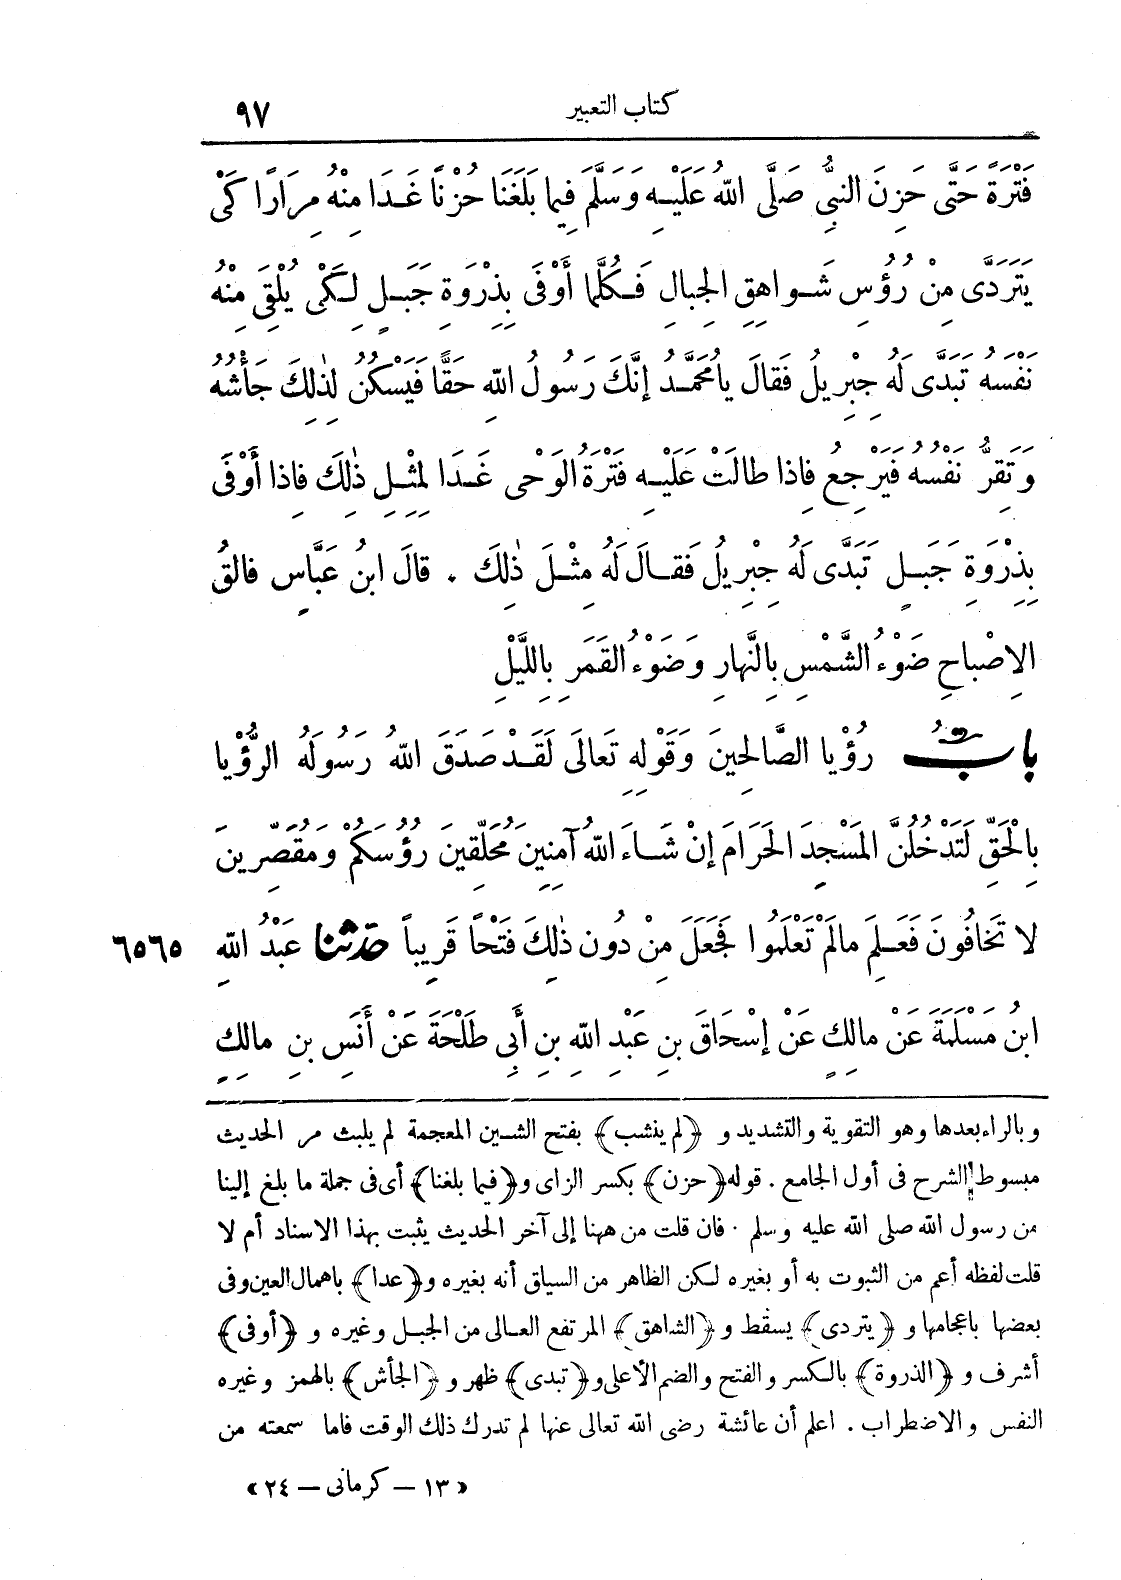 كتاب التعبير ٩٧
فَتْرَةً حَتَّى حَزِنَ النبىُّ صَلَّى اللهُ عَلَيْهِ وَسَلَّمَ فِيما بَلَغَنَا حُزْناً غَدَا مِنْهُ مِرَاراً كَىْ
يَتَرَدَّى مِنْ رُؤُسِ شَواهِقِ الجِبالِ فَكُلَّما أَوْفَى بِذْرِوَةِ جَبَلٍ لِكَىْ يُلْقِىَ مِنْهُ
نَفْسَهُ تَبَدَّى لَهُ جِبْرِيلُ فَقالَ يامُحَمَّدُ إنَّكَ رَسُولُ اللهِ حَقًّا فَيَسْكُنُ لِذٰلِكَ جَأْشُهُ
وَتَقِرُّ نَفْسُهُ فَيَرْجِعُ فاِذا طالَتْ عَلَيْهِ فَتْرَةُ الوَحْىِ غَدَا لِمْثِلِ ذٰلِكَ فاِذا أَوْفَى
بِذْرِوَةِ جَبَلٍ تَبَدَّى لَهُ جِبْرِيلُ فَقالَ لَهُ مِثْلَ ذٰلِكَ . قالَ ابنُ عَبَّاسٍ فالقُ
الاِصْباحِ ضَوْءُ الشَّمْسِ بِالنَّهارِ وَضَوْءُ القَمَرِ بِاللَّيْلِ
بابُ رُؤْيا الصَّالِحِينَ وَقَوْلِهِ تَعالَى لَقَدْ صَدَقَ اللهُ رَسُولَهُ الرُّؤْيا
بِالْحَقِّ لَتَدْخُلُنَّ المَسْجِدَ الحَرَامَ إنْ شَاءَ اللهُ آمِنِينَ مُحَلِّقِينَ رُؤُسَكُمْ وَمُقَصِّرِينَ
لا تَخافُونَ فَعَلِمَ مالَمْ تَعْلَمُوا فَجَعَلَ مِنْ دُونِ ذٰلِكَ فَتْحاً قَرِيباً حَدَّثَنا عَبْدُ اللهِ ٦٥٦٥
ابنُ مَسْلَمَةَ عَنْ مالِكٍ عَنْ إِسْحاقَ بنِ عَبْدِ اللهِ بنِ أَبِى طَلْحَةَ عَنْ أَنَسِ بنِ مالِكٍ
وبالراء بعدها وهو التقوية والتشديد و ﴿لم ينشب﴾ بفتح الشين المعجمة لم يلبث مر الحديث
مبسوط الشرح فى أول الجامع . قوله ﴿حزن﴾ بكسر الزاى و﴿فيما بلغنا﴾ أى فى جملة ما بلغ إلينا
من رسول الله صلى الله عليه وسلم . فان قلت من ههنا إلى آخر الحديث يثبت بهذا الاسناد أم لا
قلت لفظه أعم من الثبوت به أو بغيره لكن الظاهر من السياق أنه بغيره و﴿عدا﴾ باهمال العين وفى
بعضها باعجامها و ﴿يتردى﴾ يسقط و ﴿الشاهق﴾ المرتفع العالى من الجبل وغيره و ﴿أوفى﴾
أشرف و ﴿الذروة﴾ بالكسر والفتح والضم الأعلى و﴿تبدى﴾ ظهر و ﴿الجأش﴾ بالهمز وغيره
النفس والاضطراب . اعلم أن عائشة رضى الله تعالى عنها لم تدرك ذلك الوقت فاما سمعته من
« ١٣ – كرمانى – ٢٤ »